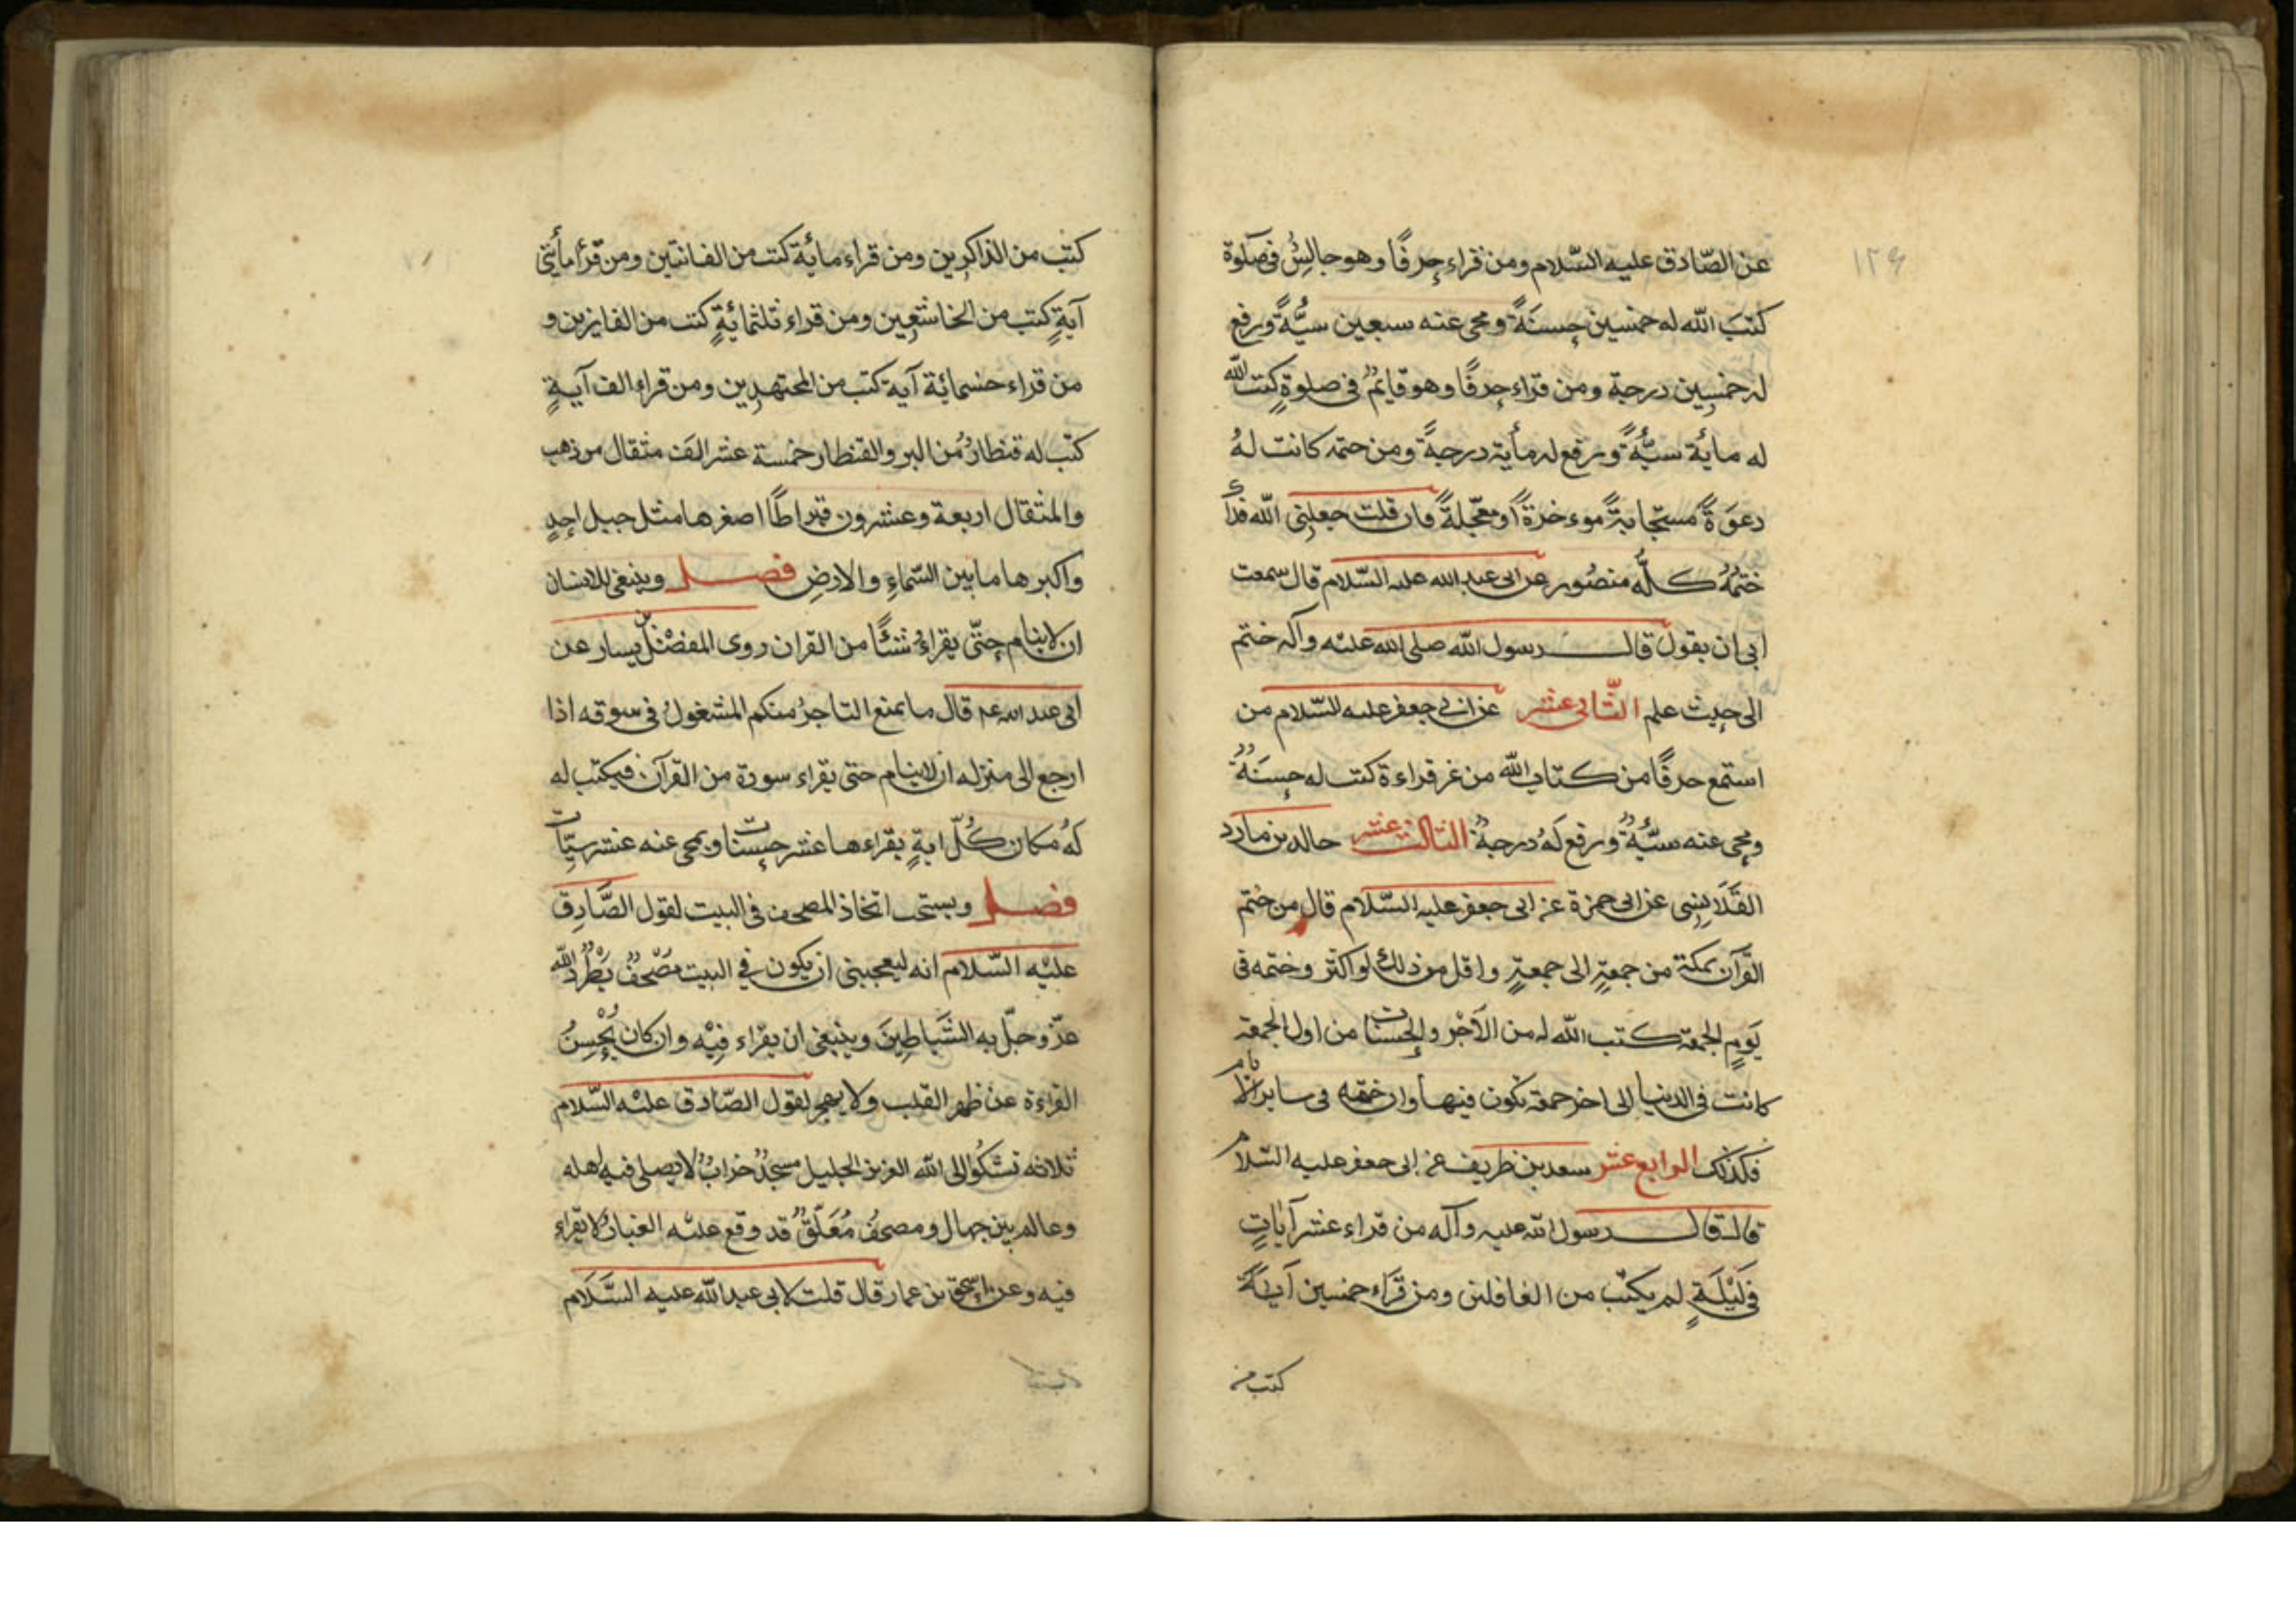 ١٢٦
عن الصّادق عليه السّلام ومن قراء حرفًا وهو جالسٌ فى صلوة
كتبَ الله له خمسين حسنَةً ومحى عنه سبعين سيّةً ورفع
له خمسين درجة ومن قراء حرفًا وهو قايمٌ فى صلوةٍ كتب الله
له مائة سيّئَةً ورفع له مأية درجةً ومن ختمه كانت لهُ
دعوَةً مستجابةً موءخرةً او معجّلةً فان قلت جعلنى الله فداك
ختمهُ كلّه منصُور عن ابى عبد الله عليه السّلام قال سمعت
ابى ان يقول قال رسول الله صلى الله عليه وآله ختم
الى حيث علم الثّانى عشر عن ابى جعفر عليه السّلام من
استمع حرفًا من كتاب الله من غير قراءة كتب له حسنَةٌ
ومحى عنه سيّئَةٌ ورفع لهُ درجةٌ الثالث عشر خالد بن مارد
القَلَانِسِى عن ابى حمزة عن ابى جعفر عليه السّلام قال من ختم
القرآن بمكة من جمعةٍ الى جمعةٍ واقل من ذلك او اكثر وختمه فى
يَومِ الجمعة كتب الله له من الاَجْر والحسنات من اول الجمعة
كانت فى الدنيا الى اخر جمعة تكون فيها وان ختمه فى ساير الايام
فكذلك الرابع عشر سعد بن طريف عن ابى جعفر عليه السّلام
قال قال رسول الله عليه وآله من قراء عشر آياتٍ
فى لَيْلَةٍ لم يكتب من الغافلين ومن قَرَاء خمسين آيةً
كتب من
كتب من الذاكرين ومن قراء مائة كتب من القانتين ومن قرأ مأيتى
آيةٍ كتب من الخاشعين ومن قراء ثلثمائةٍ كتب من الفايزين و
من قراء خمسمائة آية كتب من المجتهدين ومن قراء الف آيةٍ
كتب له قنطارٌ من البر والقنطار خمسة عشر الف مثقال من ذهب
والمثقال اربعة وعشرون قيراطًا اصغرها مثل جبل احدٍ
واكبرها ما بين السّماءِ والارضِ فصل وينبغى للانسان
ان لا ينام حتّى يقراءُ شيئًا من القران روى المفضّل بن يسار عن
ابى عبد الله عم قال ما يمنع التاجرُ منكم المشغولُ فى سوقه اذا
ارجع الى منزله ان لاينام حتى يقراء سورة من القرآن فيكتب له
لهُ مكان كُلّ ايةٍ يقراءها عشر حسنات ويمحى عنه عشر سيّات
فصل ويستحب اتخاذ المصحف فى البيت لقول الصَّادِق
عليْه السّلام انه ليعجبنى ان يكون فى البيت مصْحفٌ يَطْردُ الله
عزّ وجلّ به الشَّيَاطِينَ وينبغى ان يقراء فِيْه وان كان يُحْسِنُ
القراءة عن ظهر القلب ولا يهجر لقول الصّادق عليْه السّلام
ثلاثه تشكُوا الى الله العزيز الجليل مسجدٌ خرابٌ لا يصلى فيه اهله
وعالم بين جهال ومصحفٌ مُعَلّقٌ قد وقع عليْه الغبارُ لا يقراء
فيه وعن اسحٰق بن عمار قال قلت لابى عبد الله عليه السَّلَام